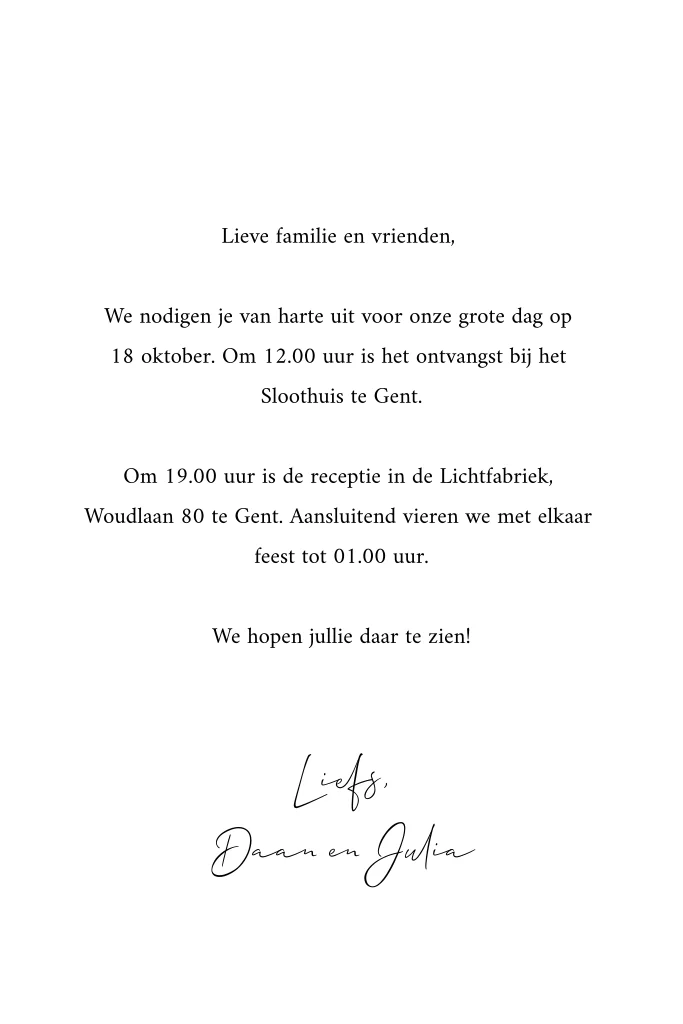 Lieve familie en vrienden,
We nodigen je van harte uit voor onze grote dag op
18 oktober. Om 12.00 uur is het ontvangst bij het
Sloothuis te Gent.
Om 19.00 uur is de receptie in de Lichtfabriek,
Woudlaan 80 te Gent. Aansluitend vieren we met elkaar
feest tot 01.00 uur.
We hopen jullie daar te zien!
Liefs,
Daan en Julia